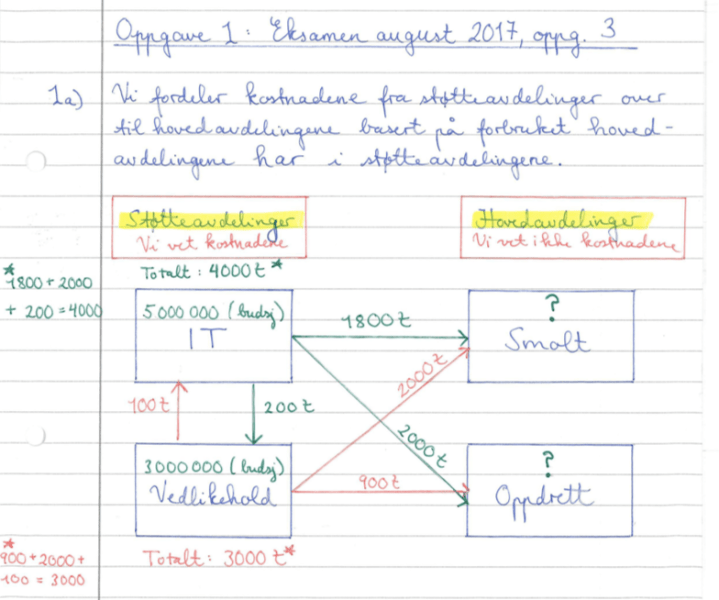 Oppgave 1: Eksamen august 2017, oppg. 3
1a) Vi fordeler kostnadene fra støtteavdelinger over
til hovedavdelingene basert på forbruket hoved-
avdelingene har i støtteavdelingene.
Støtteavdelinger
Vi vet kostnadene
Hovedavdelinger
Vi vet ikke kostnadene
*
1800 + 2000
+ 200 = 4000
Totalt: 4000 t *
5 000 000 (budsj)
IT
1800 t
?
Smolt
100 t
200 t
2000 t
2000 t
3 000 000 (budsj)
Vedlikehold
900 t
?
Oppdrett
*
900 + 2000 +
100 = 3000
Totalt: 3000 t *